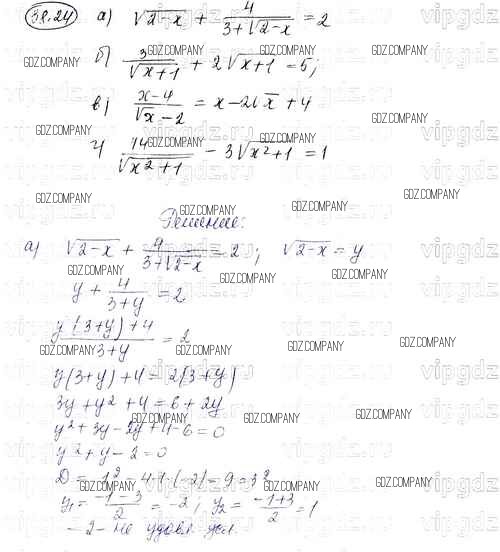 38.24 а) √(2-x) + 4/(3+√(2-x)) = 2
б) 3/√(x+1) + 2√(x+1) = 5;
в) (x-4)/(√x-2) = x-2√x+4
г) 14/√(x²+1) - 3√(x²+1) = 1
Решение:
а) √(2-x) + 4/(3+√(2-x)) = 2; √(2-x) = y
y + 4/(3+y) = 2
(y(3+y)+4)/(3+y) = 2
y(3+y)+4 = 2(3+y)
3y+y²+4 = 6+2y
y²+3y-2y+4-6=0
y²+y-2=0
D = 1² - 4·1·(-2) = 9 = 3²
y₁ = (-1-3)/2 = -2; y₂ = (-1+3)/2 = 1
-2 - не удовл. усл.
GDZ.COMPANY
vipgdz.ru